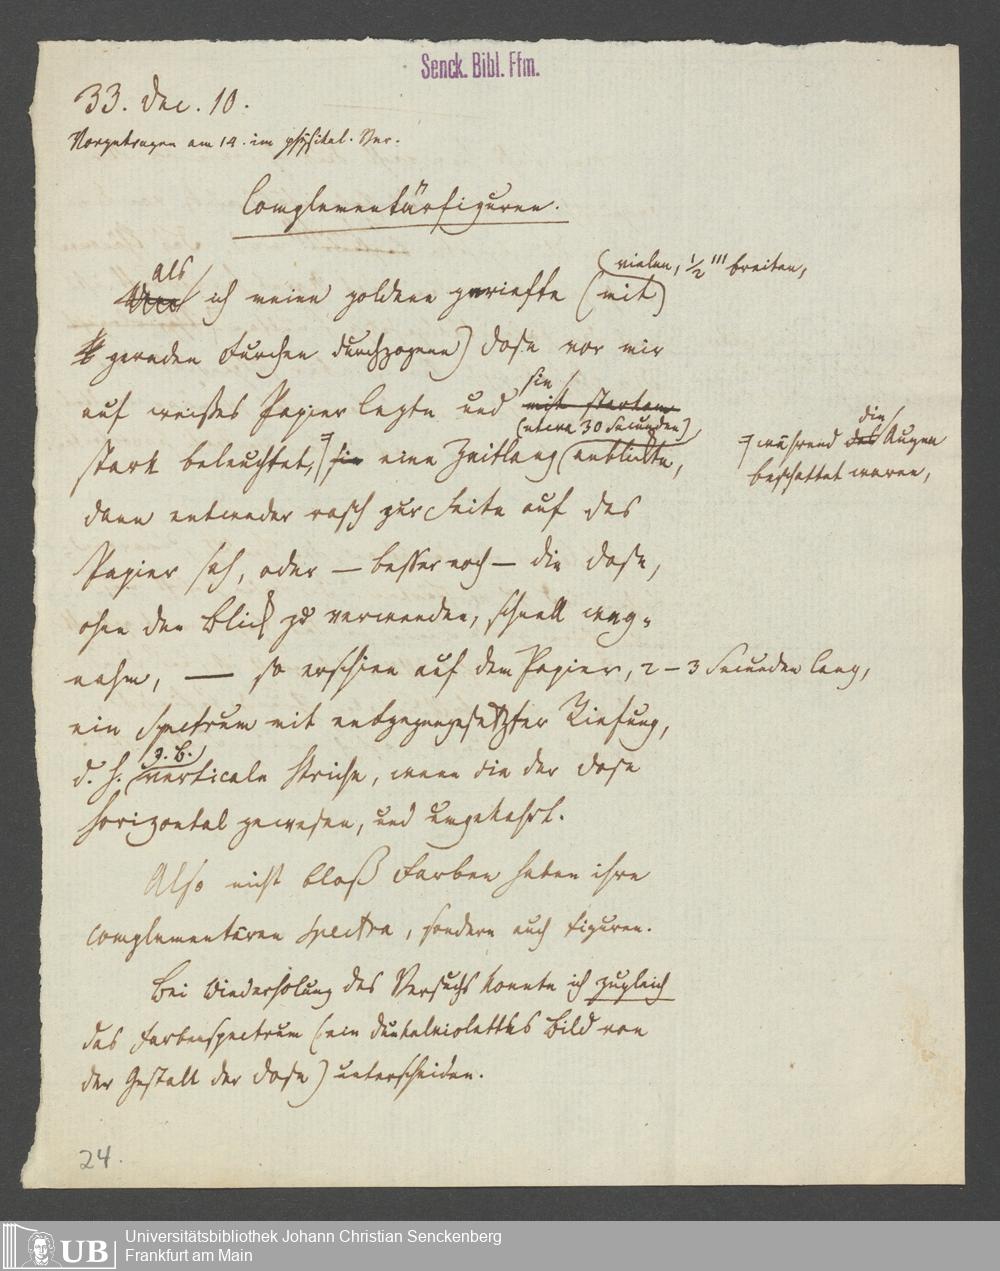 Senck. Bibl. Ffm.
33. Dec. 10.
Vorgetragen am 14. im physikal. Ver.
Complementärfiguren.
als (vielen, ½''' breiten,
ich meine goldene geriefte (mit)
geraden Furchen durchzogene) Dose vor mir
sie
auf weißes Papier legte und mit starkem
(etwa 30 Secunden)
stark beleuchtet, sie eine Zeitlang anblickte,
während das die Augen
beschattet waren,
dann entweder rasch zur Seite auf das
Papier sah, oder — besser noch — die Dose,
ohne den Blick zu verwenden, schnell weg-
nahm, — so erschien auf dem Papier, 2–3 Secunden lang,
ein Spectrum mit entgegengesetzter Riefung,
z. B.
d. h. verticale Striche, wenn die der Dose
horizontal gewesen, und umgekehrt.
Also nicht bloß Farben haben ihre
complementären Spectra, sondern auch Figuren.
Bei Wiederholung des Versuchs konnte ich zugleich
das Farbenspectrum (ein dunkelviolettes Bild von
der Gestalt der Dose) unterscheiden.
24.
UB
Universitätsbibliothek Johann Christian Senckenberg
Frankfurt am Main